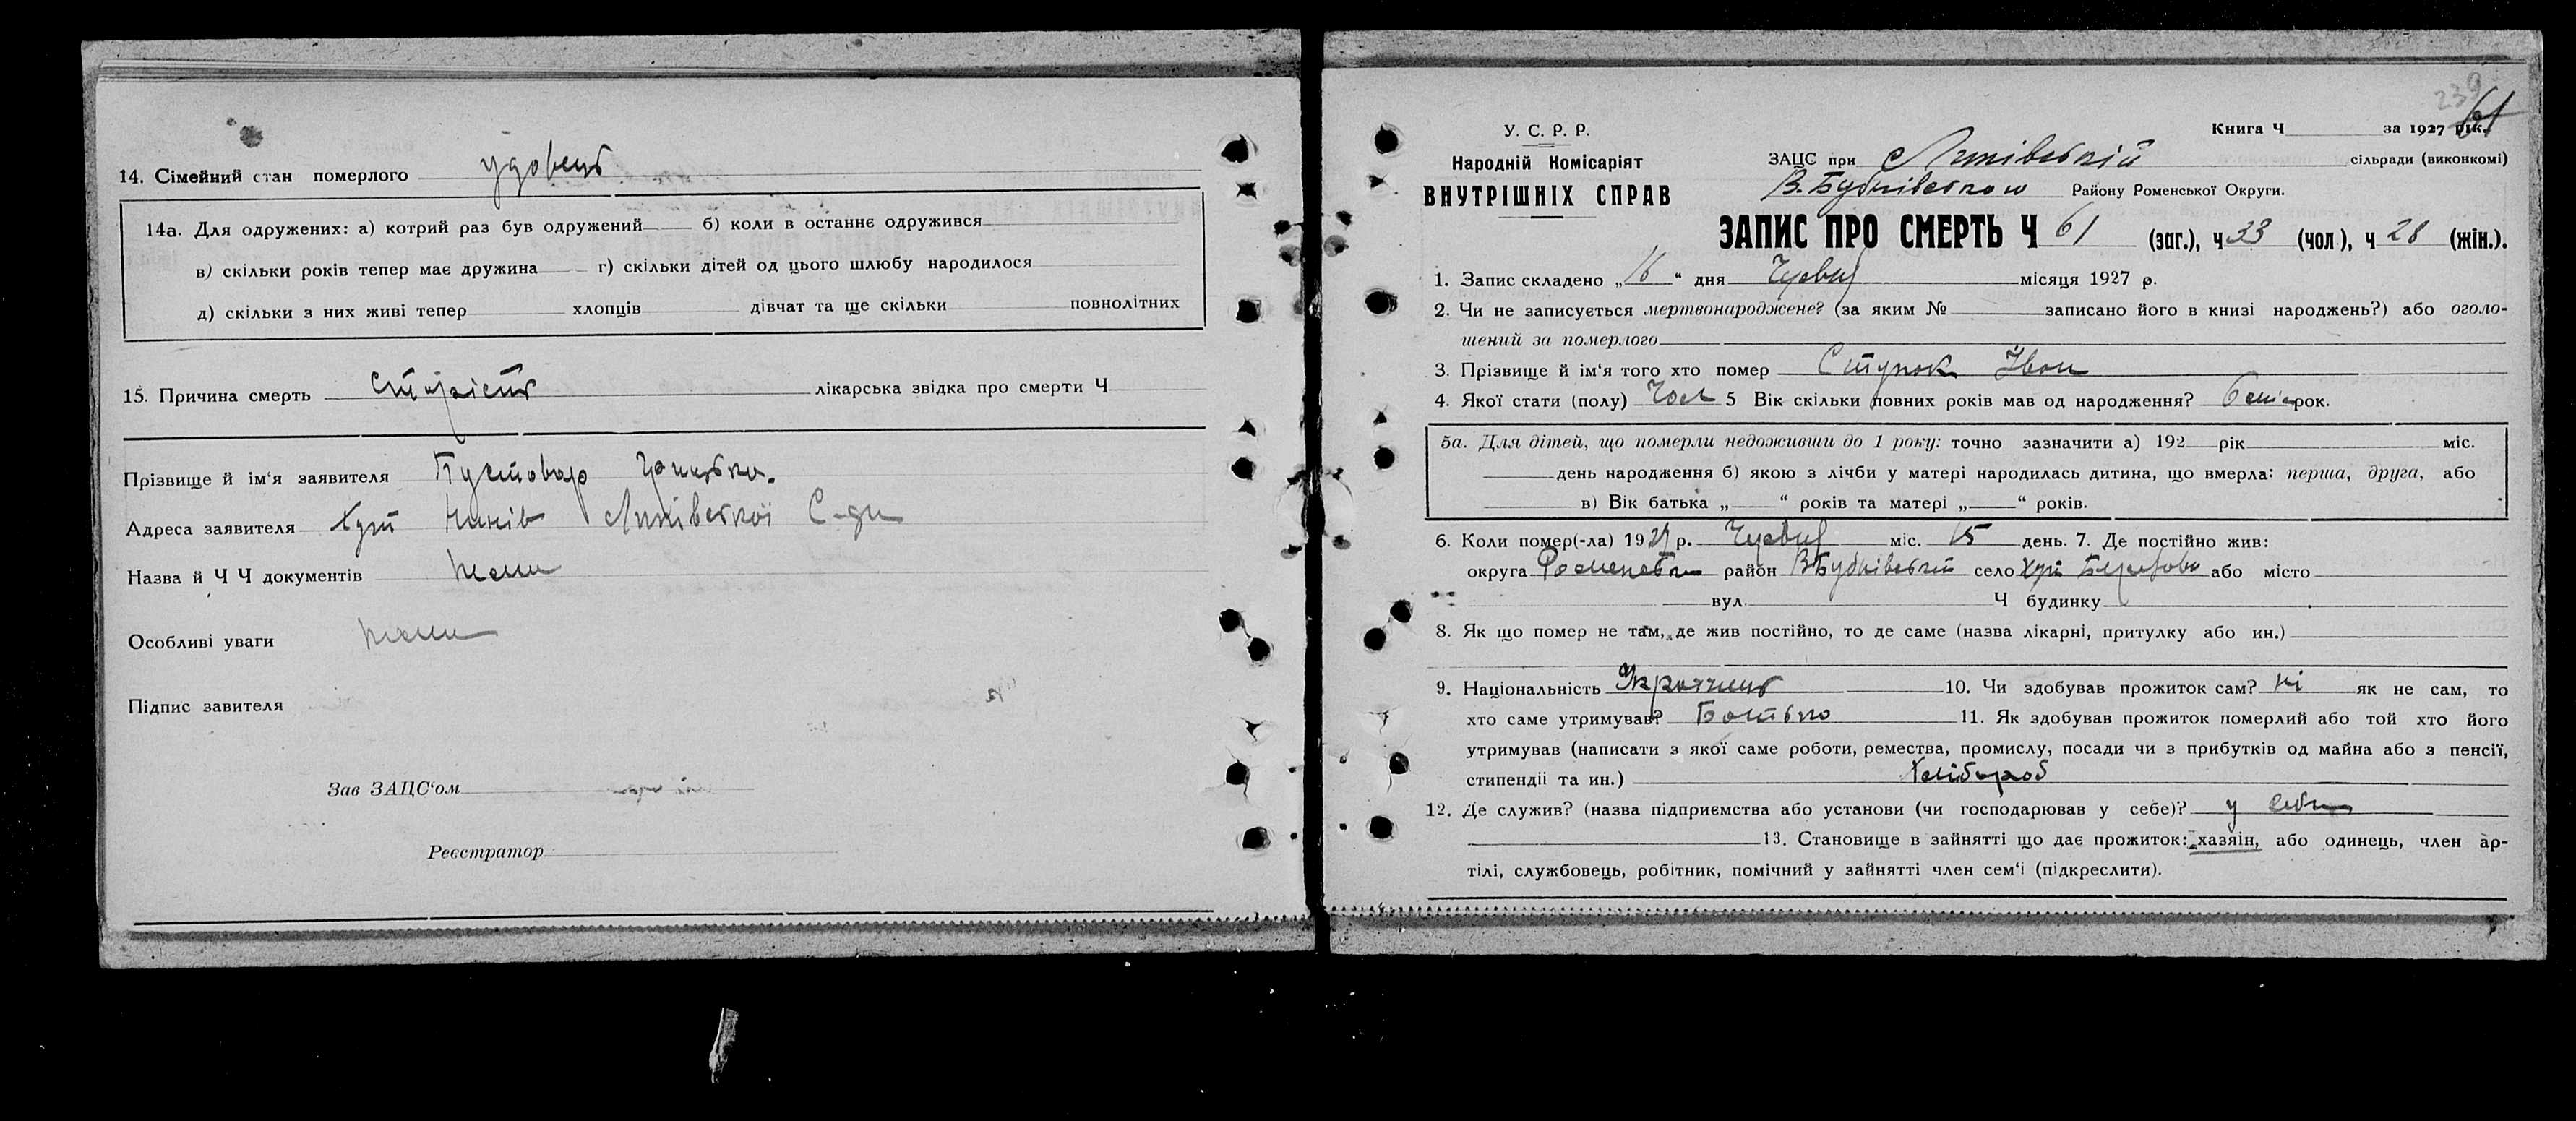 14. Сімейний стан померлого удовець
14а. Для одружених: а) котрий раз був одружений б) коли в останнє одружився
в) скільки років тепер має дружина г) скільки дітей од цього шлюбу народилося
д) скільки з них живі тепер хлопців дівчат та ще скільки повнолітних
15. Причина смерть старість лікарська звідка про смерти Ч
Прізвище й ім‘я заявителя Пустовар Грицько.
Адреса заявителя Хут Липівської С-ди
Назва й Ч Ч документів нема
Особливі уваги нема
Підпис завителя
Зав ЗАЦС‘ом
Реєстратор
239
61
У. С. Р. Р.
Народній Комісаріят
ВНУТРІШНІХ СПРАВ
Книга Ч за 1927 рік.
ЗАЦС при Липівській сільради (виконкомі)
В.Бубнівського Району Роменської Округи.
ЗАПИС ПРО СМЕРТЬ Ч 61 (заг.), ч 33 (чол), ч 28 (жін.).
1. Запис складено „16“ дня місяця 1927 р.
2. Чи не записується мертвонароджене? (за яким № записано його в книзі народжень?) або оголо-
шений за померлого
3. Прізвище й ім‘я того хто помер Ступак Іван
4. Якої стати (полу) Чол 5 Вік скільки повних років мав од народження? рок.
5а. Для дітей, що померли недоживши до 1 року: точно зазначити а) 192 рік міс.
день народження б) якою з лічби у матері народилась дитина, що вмерла: перша, друга, або
в) Вік батька „ “ років та матері „ “ років.
6. Коли помер(-ла) 1927 р. міс. 15 день. 7. Де постійно жив:
округа Роменська район ВБубнівський село Хут або місто
вул. Ч будинку
8. Як що помер не там, де жив постійно, то де саме (назва лікарні, притулку або ин.)
9. Національність Українець 10. Чи здобував прожиток сам? ні як не сам, то
хто саме утримував? Батько 11. Як здобував прожиток померлий або той хто його
утримував (написати з якої саме роботи, ремества, промислу, посади чи з прибутків од майна або з пенсії,
стипендії та ин.) Хлібороб
12. Де служив? (назва підприємства або установи (чи господарював у себе)? у себе
13. Становище в зайнятті що дає прожиток: хазяін, або одинець, член ар-
тілі, службовець, робітник, помічний у зайнятті член сем‘ї (підкреслити).